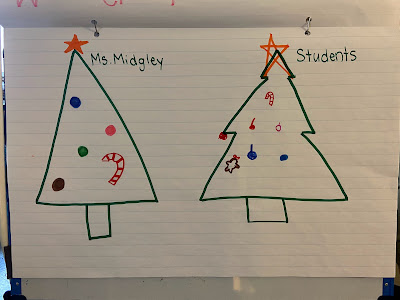 Ms. Midgley
Students